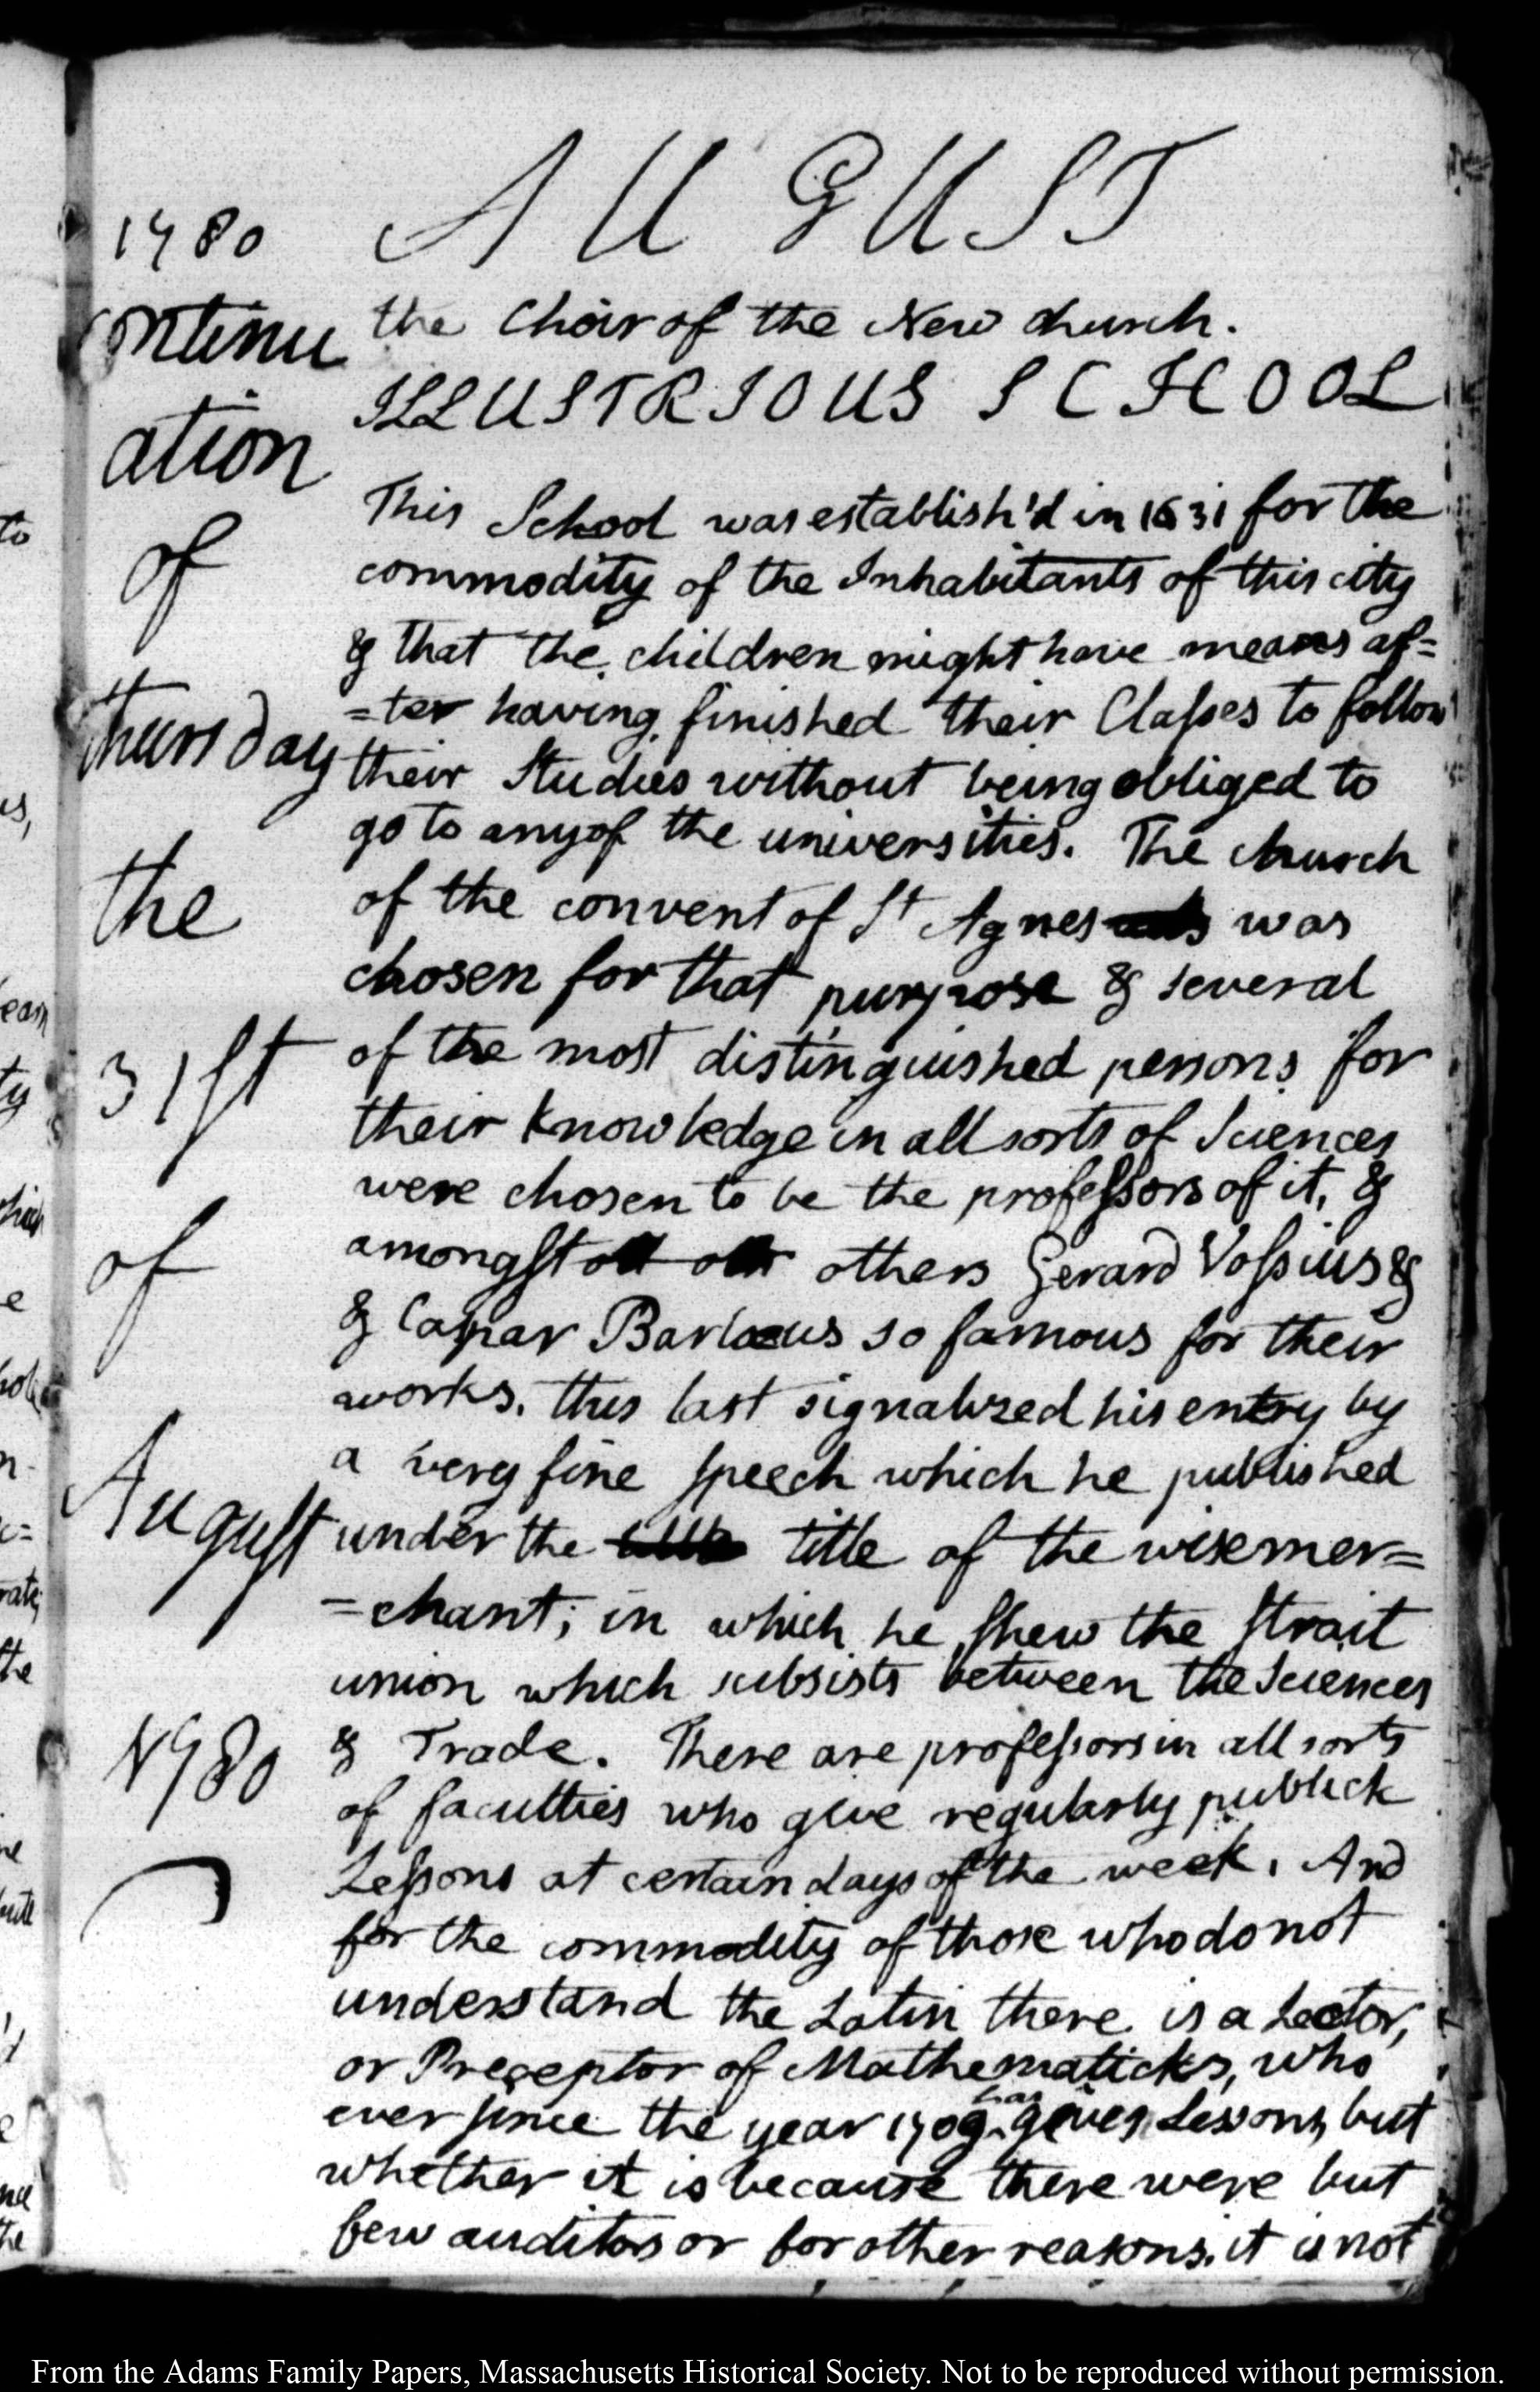 AUGUST
1780
the Choir of the New church.
Continu
ation
of
Thursday
the
31st
of
August
1780
ILLUSTRIOUS SCHOOL
This School was establish'd in 1631 for the
commodity of the Inhabitants of this city
& that the children might have means af=
=ter having finished their Classes to follow
their Studies without being obliged to
go to any of the universities. The church
of the convent of St Agnes was
chosen for that purpose & several
of the most distinguished persons for
their knowledge in all sorts of Sciences
were chosen to be the professors of it, &
amongst others Gerard Vossius &
& Caspar Barlaeus so famous for their
works. this last signalized his entry by
a very fine speech which he published
under the title of the wise mer=
=chant; in which he shew the strait
union which subsists between the Sciences
& Trade. There are professors in all sorts
of faculties who give regularly publick
Lessons at certain days of the week. And
for the commodity of those who do not
understand the Latin there is a Lector,
or Preceptor of Mathematicks, who
ever since the year 1709. has gives Lessons, but
whether it is because there were but
few auditors or for other reasons. it is not
From the Adams Family Papers, Massachusetts Historical Society. Not to be reproduced without permission.